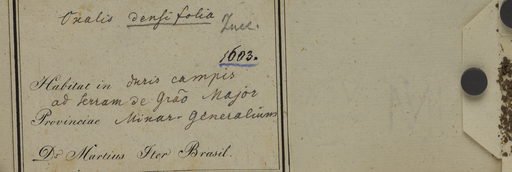 Oxalis densifolia Zucc.
1603.
Habitat in duris campis
ad serram de Grão Major
Provinciae Minar. Generalium
Dr. Martius Iter Brasil.